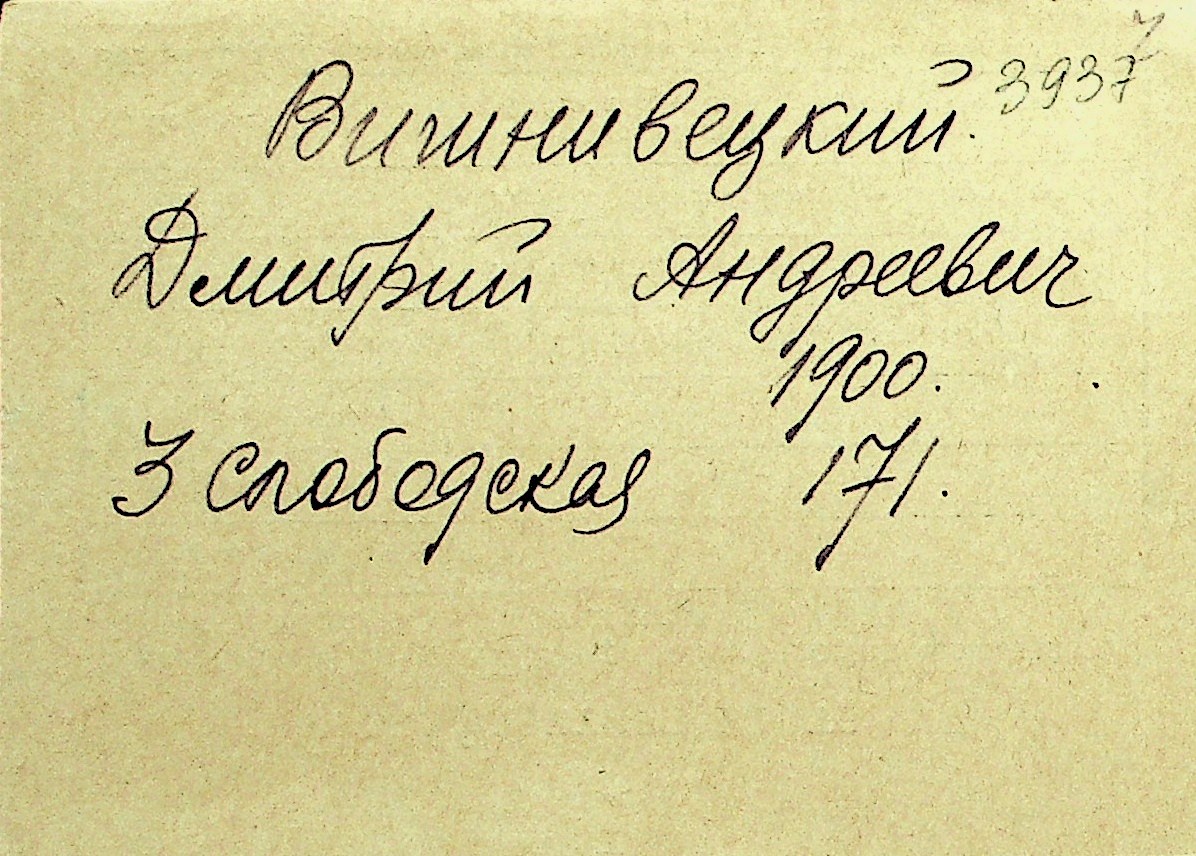 7
3937
Вишнивецкий.
Дмитрий Андреевич
1900.
3 Слободская 171.